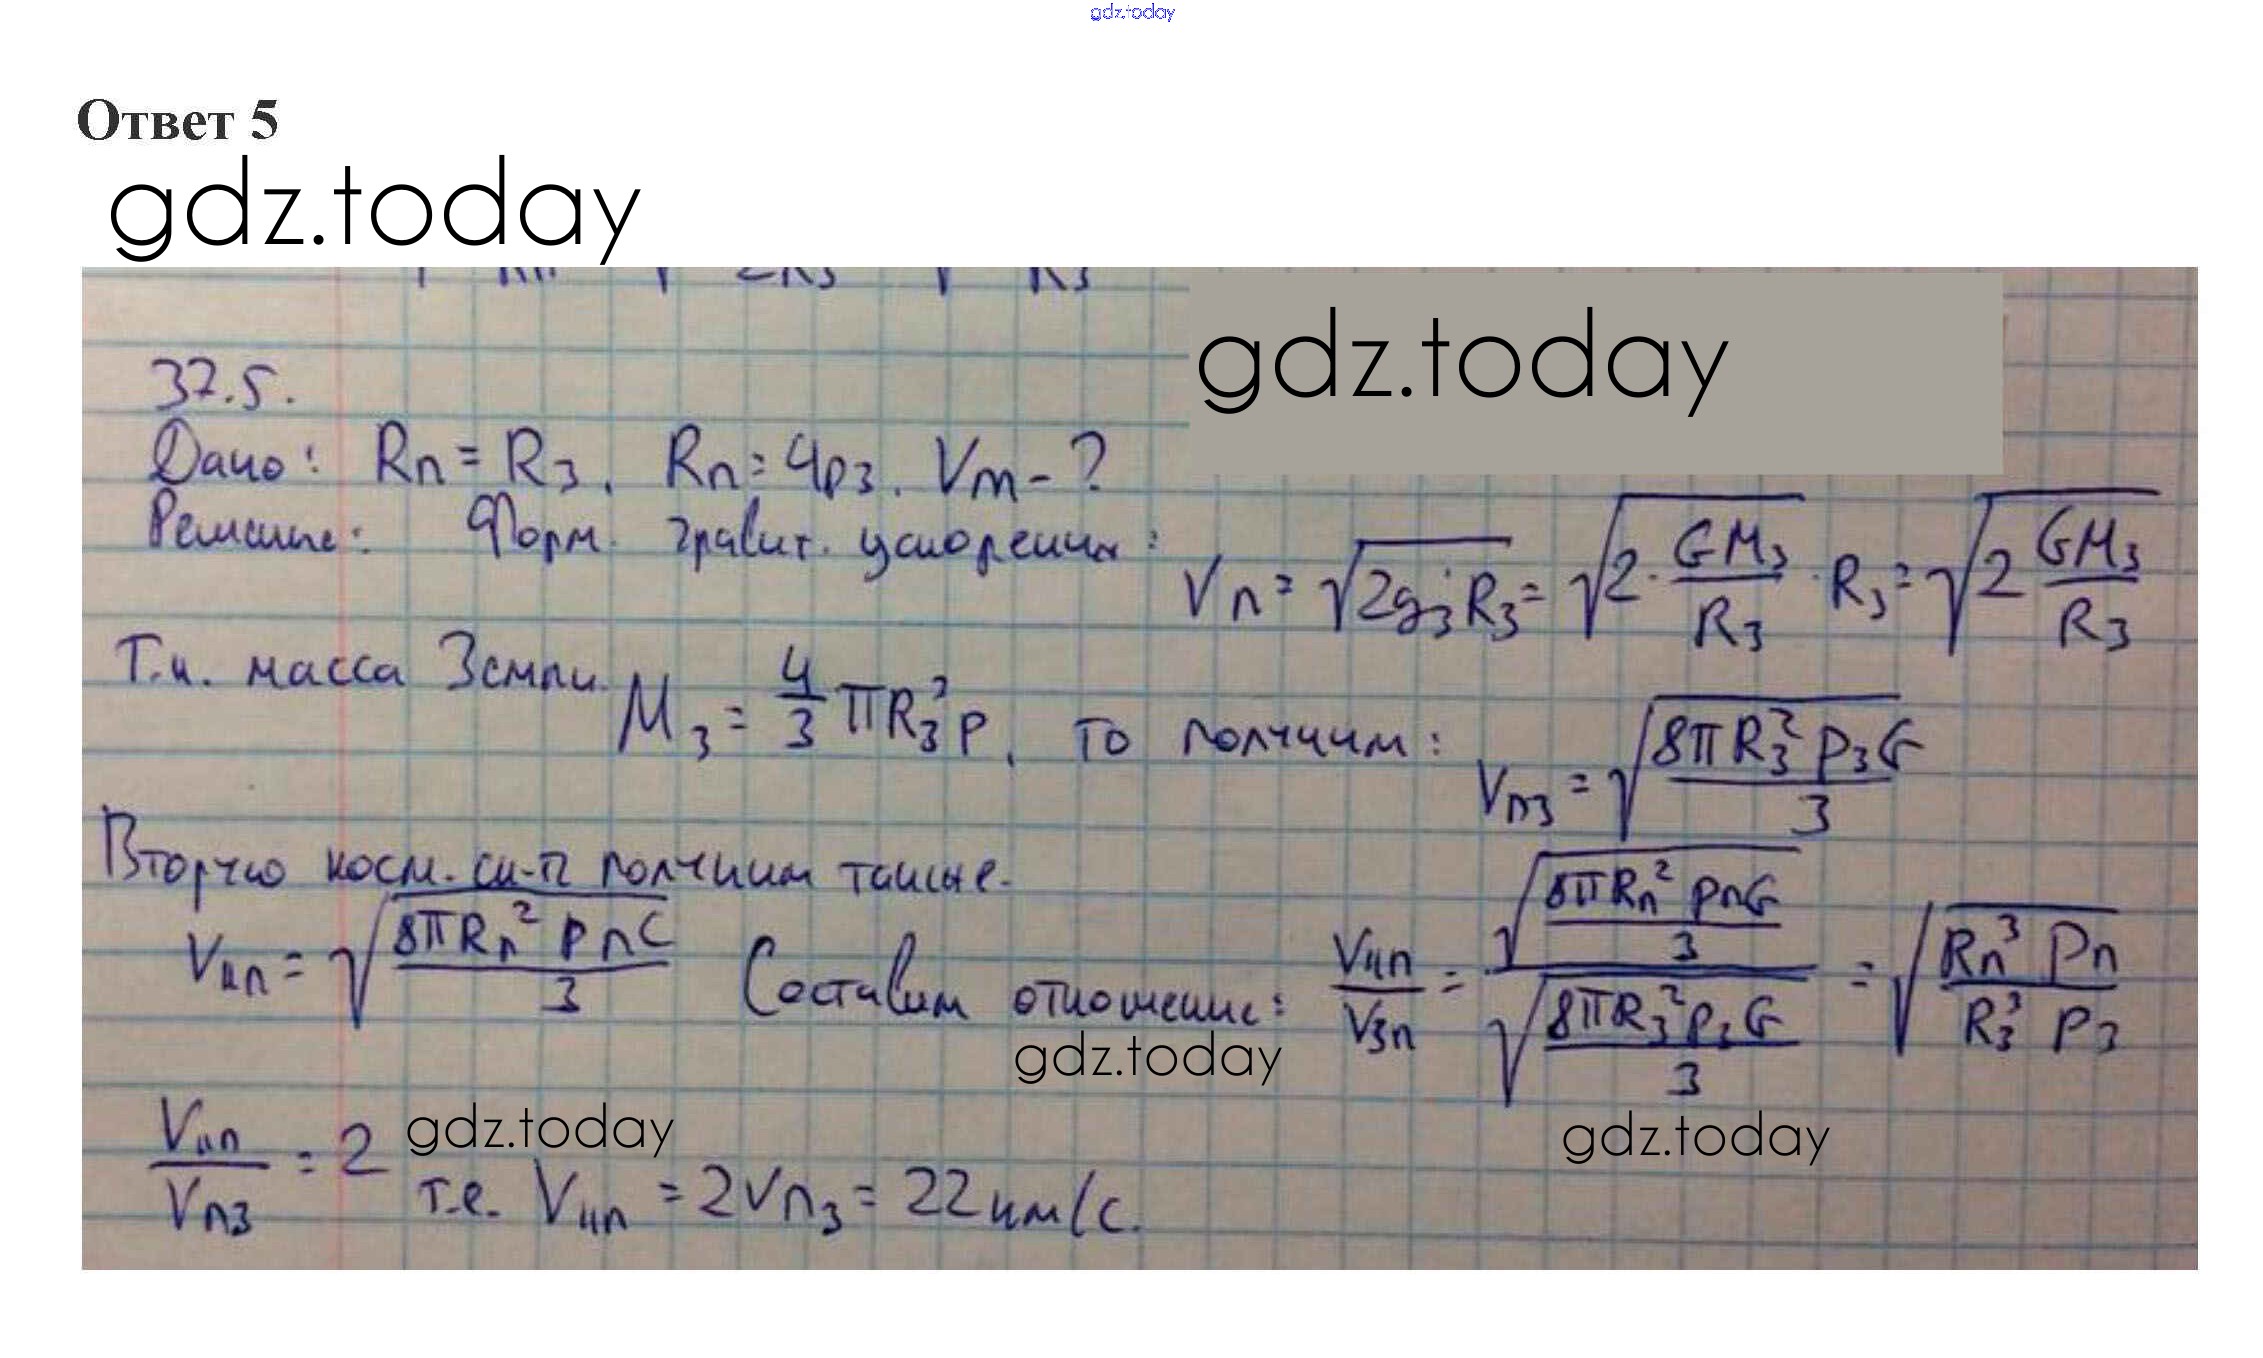 gdz.today
Ответ 5
gdz.today
gdz.today
37.5.
Дано: Rп = Rз. Rп = 4ρз. Vт - ?
Решение: Форм. гравит. ускорения: Vп = √(2gзRз) = √(2 · GMз/Rз · Rз) = √(2 GMз/Rз)
Т.к. масса Земли Mз = 4/3 πRз³ρ, то получим: Vпз = √(8πRз²ρзG/3)
Вторую косм. ск-ть получим также.
Vпп = √(8πRп²ρпG/3) Составим отношение: Vпп/Vзп = √(8πRп²ρпG/3) / √(8πRз²ρзG/3) = √(Rп³ ρп / Rз³ ρз)
gdz.today
Vпп/Vпз = 2 gdz.today gdz.today
т.е. Vпп = 2Vпз = 22 км/с.